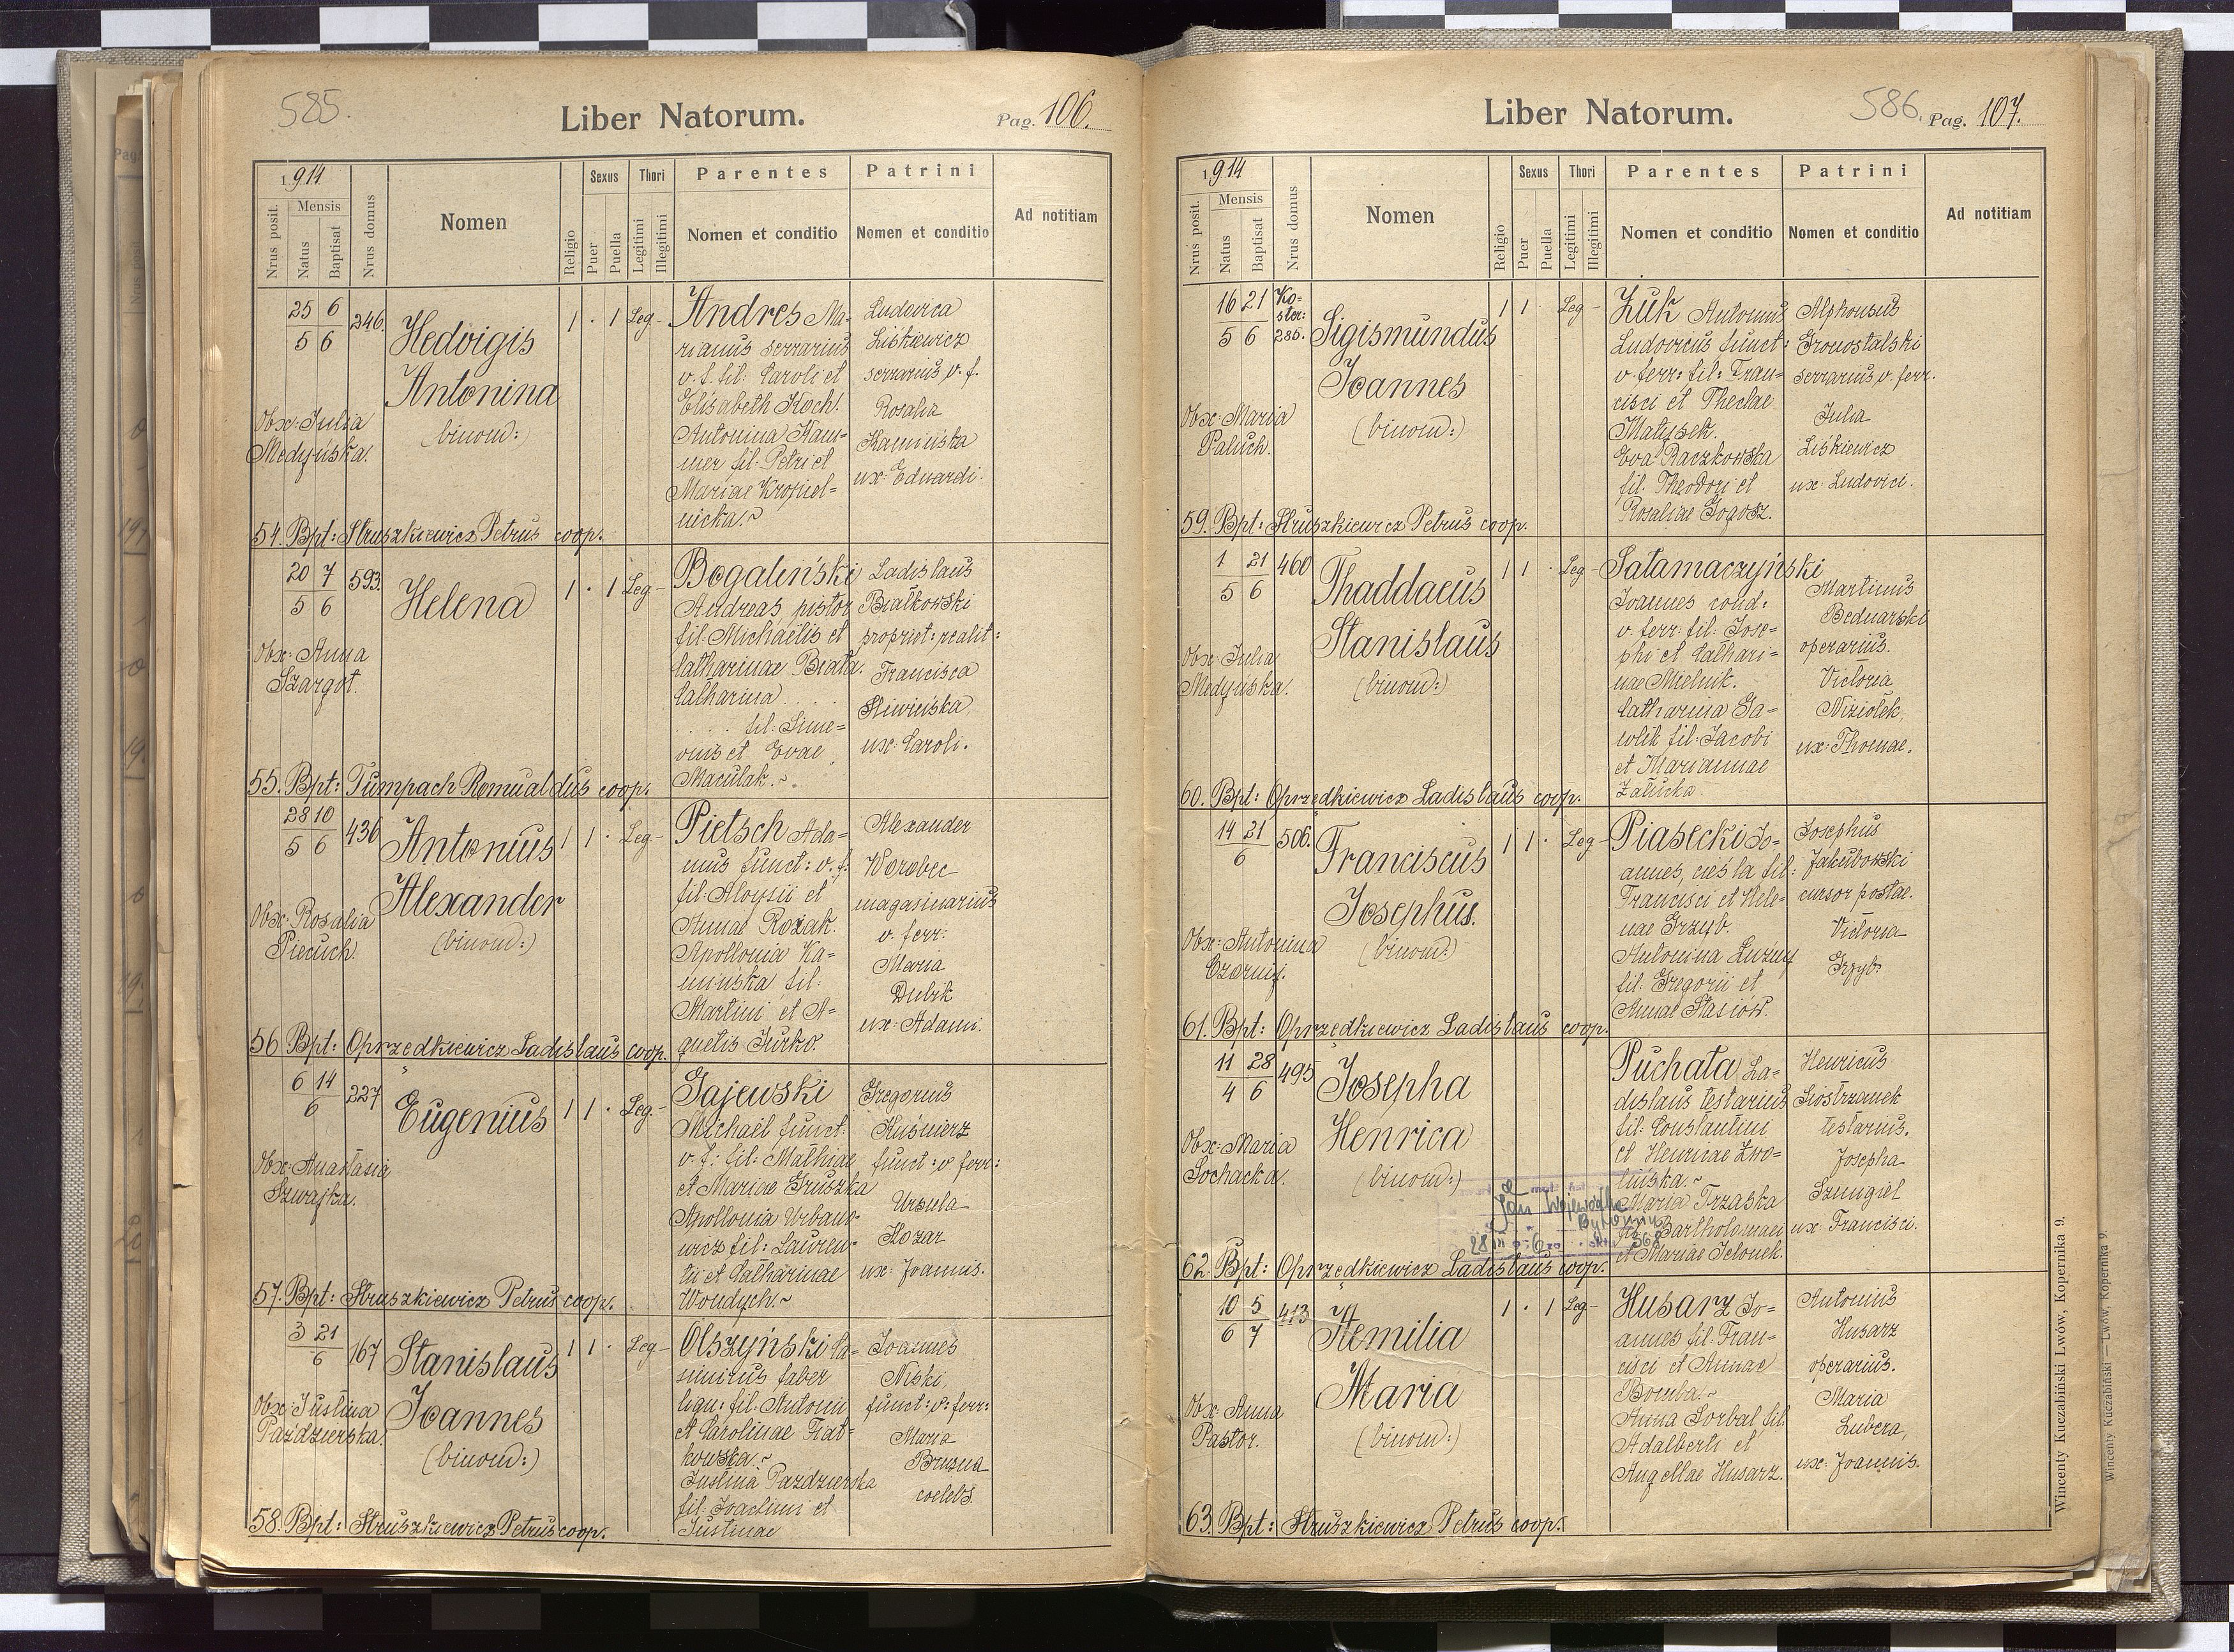 585.
Liber Natorum.
Pag. 106.
1914
Nrus posit.
Mensis
Natus
Baptisat
Nrus domus
Nomen
Religio
Sexus
Puer
Puella
Thori
Legitimi
Illegitimi
Parentes
Nomen et conditio
Patrini
Nomen et conditio
Ad notitiam
25 6
5 6
246.
Hedvigis
Antonina
(binom:)
Obx: Julia
Medyńska.
1 · 1 Leg-
Andres Ma-
rianus serrarius
v. f. fil: Caroli et
Elisabeth Koch.
Antonina Kam-
mer fil: Petri et
Mariae Kropiel-
nicka.~
Ludovica
Liśkiewicz
serrarius v. f.
Rosalia
Kamińska
ux: Eduardi.
54. Bpt: Struszkiewicz Petrus coop.
20 7
5 6
593.
Helena
Obx: Anna
Szargot.
1 · 1 Leg-
Bogaleński
Andreas, pistor
fil: Michaelis et
Catharinae Biata.
Catharina . . .
. . . fil: Sime=
onis et Evae
Maculak.~
Ladislaus
Białkowski
propriet: realit:
Francisca
Śliwińska
ux: Caroli.
55. Bpt: Tumpach Romualdus coop.
28 10
5 6
436
Antonius
Alexander
(binom:)
Obx: Rosalia
Piecuch.
1 1 · Leg-
Pietsch Ada=
mus funct: v. f.
fil: Aloysii et
Annae Rozak.
Apollonia Ka-
mińska fil:
Martini et A-
gnetis Jurko.
Alexander
Worobec
magasinarius
v. ferr:
Maria
Dubik
ux: Adami.
56. Bpt: Oprzędkiewicz Ladislaus coop.
6 14
6
227
Eugenius
Obx: Anastasia
Szwajka.
1 1 · Leg-
Gajewski
Michael funct:
v. f: fil: Mathiae
et Mariae Gruszka
Apollonia Urbano-
wicz fil: Lauren-
tii et Catharinae
Woudych.~
Gregorius
Kuśnierz
funct: v. ferr:
Ursula
Kozar
ux: Joannis.
57. Bpt: Struszkiewicz Petrus coop.
3 21
6
167
Stanislaus
Joannes
(binom:)
Obx: Justina
Pazdzierska.
1 1 · Leg-
Olszyński Ca-
simirus faber
lign: fil: Antonii
et Carolinae Fiat-
kowska.~
Justina Pazdzierska
fil: Joachimi et
Justinae
Joannes
Niski
funct: v: ferr:
Maria
Bruzna
coelebs.
58. Bpt: Struszkiewicz Petrus coop.
Liber Natorum.
586.
Pag. 107.
1914
Nrus posit.
Mensis
Natus
Baptisat
Nrus domus
Nomen
Religio
Sexus
Puer
Puella
Thori
Legitimi
Illegitimi
Parentes
Nomen et conditio
Patrini
Nomen et conditio
Ad notitiam
16 21
5 6
Ko-
ster:
285.
Sigismundus
Joannes
(binom:)
Obx: Maria
Paluch.
1 1 · Leg-
Żuk Antonius
Ludovicus funct:
v. ferr: fil: Fran-
cisci et Theclae
Matysek.
Eva Raczkowska
fil: Theodori et
Rosaliae Gogosz.
Alphonsus
Gronostalski
serrarius v. ferr.
Julia
Liśkiewicz
ux: Ludovici.
59. Bpt: Struszkiewicz Petrus coop.
1 21
5 6
460
Thaddaeus
Stanislaus
(binom:)
Obx: Julia
Medyńska.
1 1 · Leg-
Satamaczyński
Joannes cond:
v. ferr: fil: Jose=
phi et Cathari=
nae Mielnik.
Catharina Ga=
wlik fil: Jacobi
et Mariannae
Załucka
Martinus
Bednarski
operarius.
Victoria
Niziołek,
ux: Thomae.
60. Bpt: Oprzędkiewicz Ladislaus coop.
14 21
6
506.
Franciscus
Josephus.
(binom:)
Obx: Antonina
Czornij.
1 1 · Leg-
Piasecki Jo-
annes, cieśla fil:
Francisci et Hele=
nae Grzyb.
Antonina Luzny
fil: Gregorii et
Annae Stasiów.
Josephus
Jakubowski
cursor postae.
Victoria
Grzyb.
61. Bpt: Oprzędkiewicz Ladislaus coop.
11 28
4 6
495
Josepha
Henrica
(binom:)
Obx: Maria
Sochacka.
Puchata La-
dislaus testarius
fil: Constantini
et Henricae Zwo-
lińska.~
Maria Trzaska
fil: Bartholomaei
et Mariae Jelonek.
Henricus
Siostrzanek
testarius.
Josepha
Szmigiel
ux: Francisci.
Jan Wojewoda
Bytomiu
28 III 568
62. Bpt: Oprzędkiewicz Ladislaus coop.
10 5
6 7
413
Aemilia
Maria
(binom:)
Obx: Anna
Pastor.
1 · 1 Leg-
Husarz Jo-
annes fil: Fran-
cisci et Annae
Bomba.~
Anna Sorbal fil:
Adalberti et
Angellae Husarz.
Antonius
Husarz
operarius.
Maria
Lubera,
ux: Joannis.
63. Bpt: Struszkiewicz Petrus coop.
Wincenty Kuczabiński Lwów, Kopernika 9.
Wincenty Kuczabiński — Lwów, Kopernika 9.